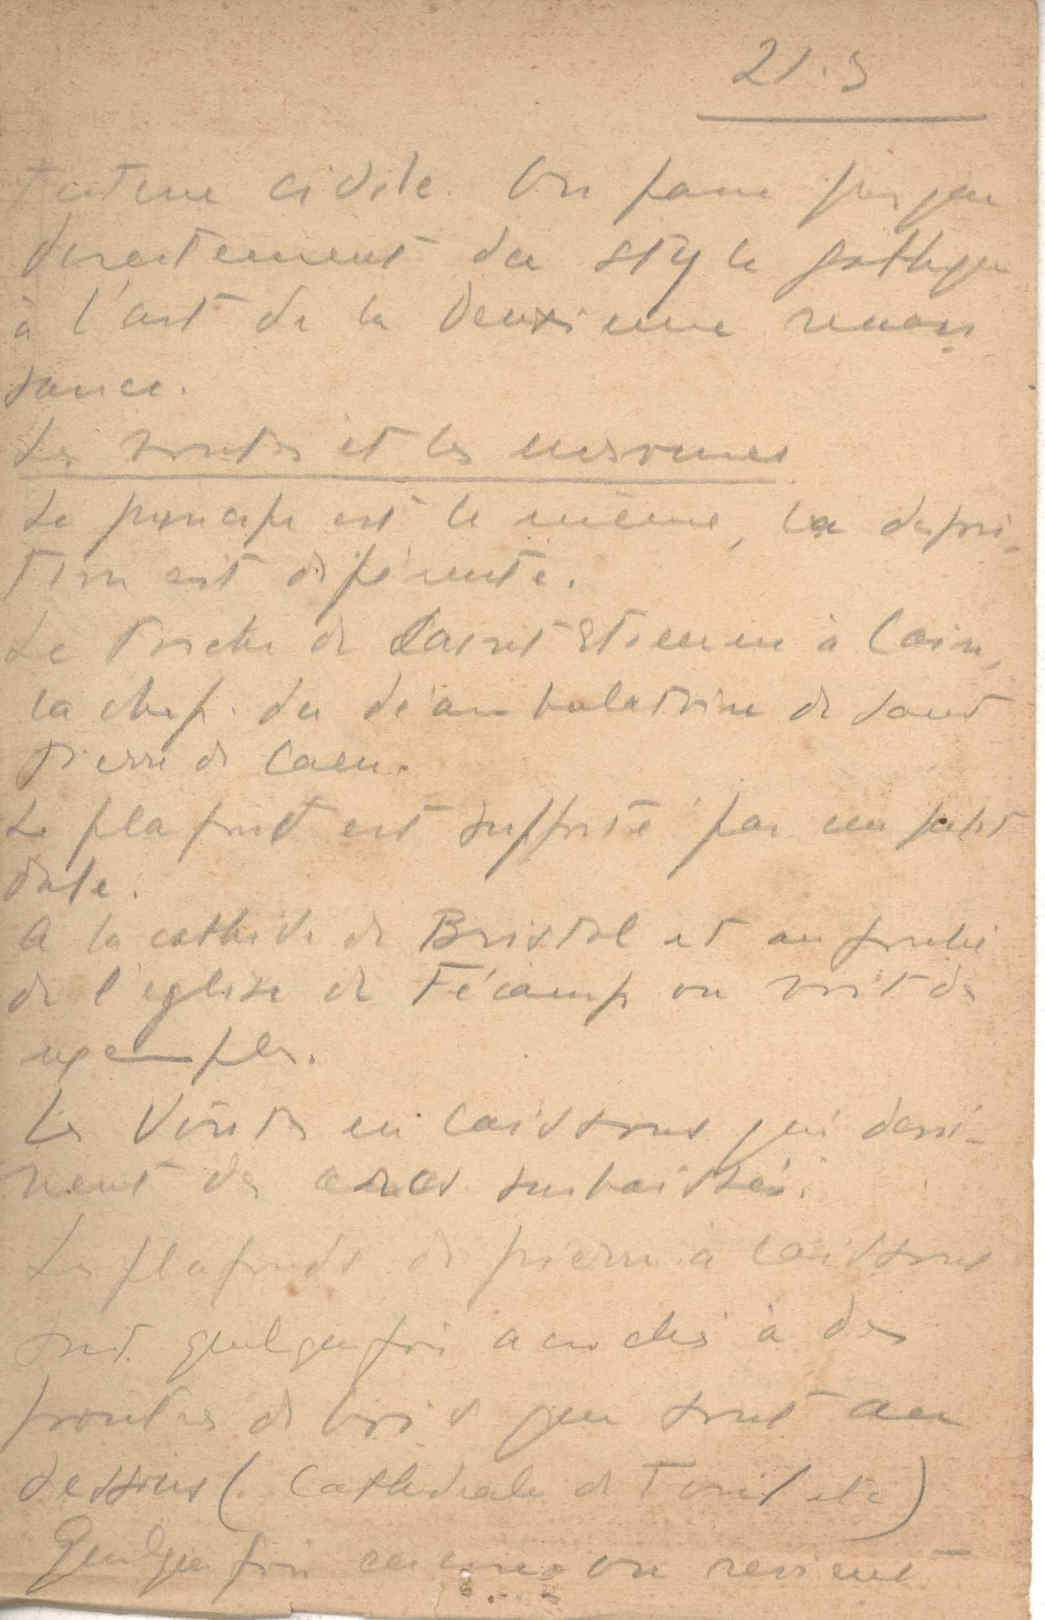 21.5
tecture civile. On passe presque
directement du style gothique
à l'art de la Deuxième renais
sance.
Les voutes et les
Le principe est le même, la disposi-
tion est différente.
Le Porche de Saint Etienne à Caen,
la chap. du déambulatoire de Saint
Pierre de Caen.
Le plafond est supporté par un
dale.
A la cathedr de Bristol et au
de l'église de Fécamp on voit des
exemples.
Les Voutes en Caissons qui dessi-
nent des arcs surbaissés.
Les plafonds de pierre à caissons
sont quelquefois à des
poutres de bois qui sont au
dessous (Cathedrale de etc)
Quelquefois encore on revient